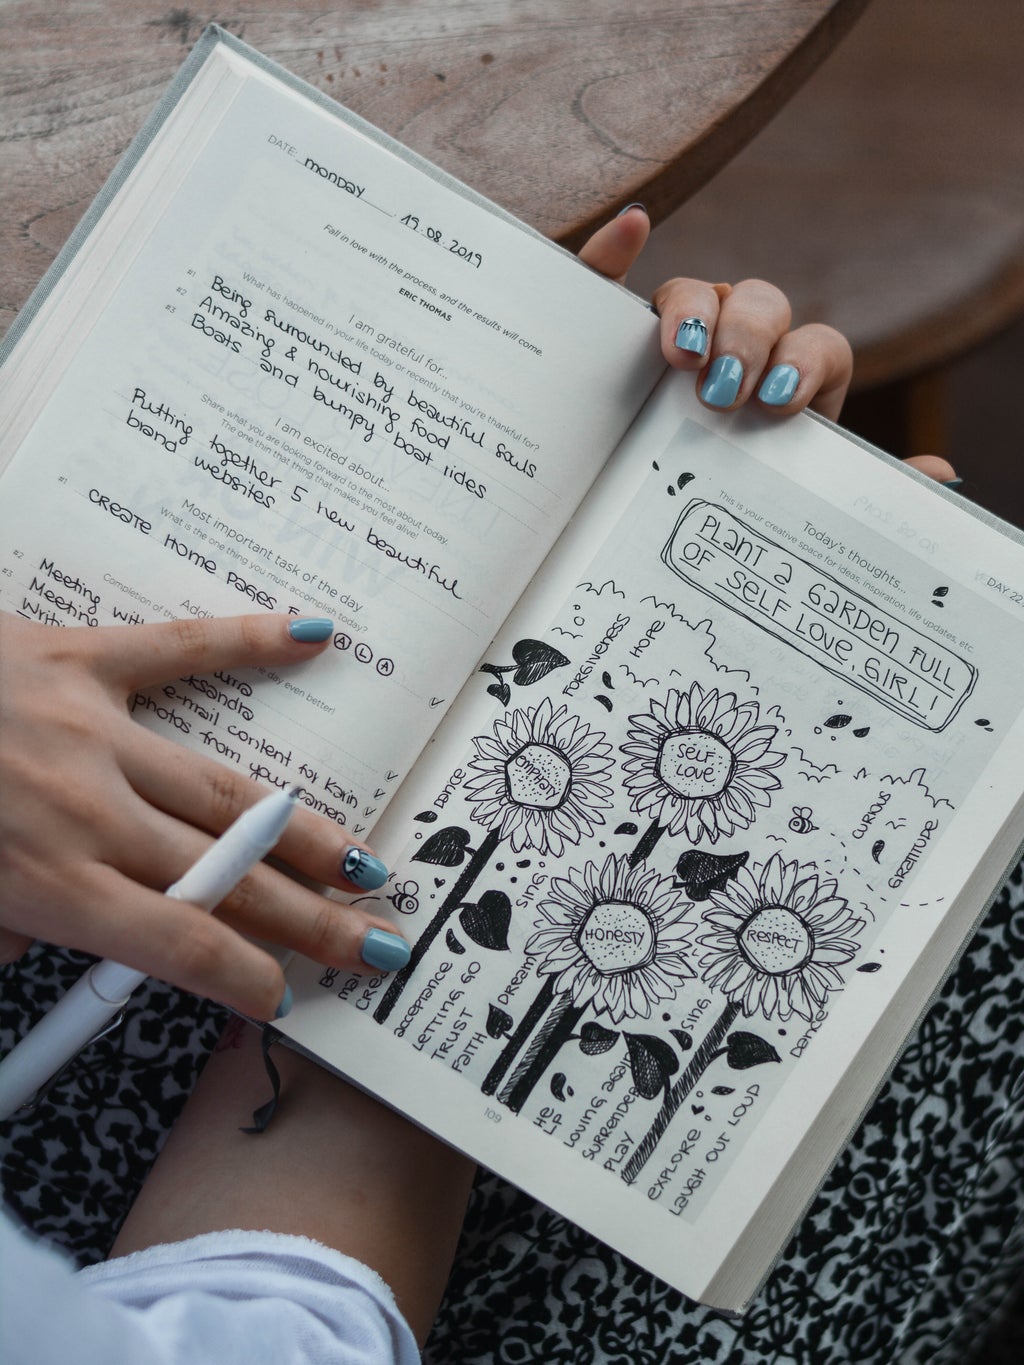 DATE: monday 19.08.2019
Fall in love with the process, and the results will come.
ERIC THOMAS
I am grateful for...
What has happened in your life today or recently that you're thankful for?
#1 Being surrounded by beautiful souls
#2 Amazing & nourishing food
#3 Boats and bumpy boat rides
I am excited about...
Share what you are looking forward to the most about today.
The one thing that makes you feel alive!
Putting together 5 new beautiful
brand websites
Most important task of the day
What is the one thing you must accomplish today?
#1 CREATE HOME PAGES
A L A
#2 Meeting with
#3 Meeting
Writing
e-mail content for Karin
photos from your camera
DAY 22
Today's thoughts...
This is your creative space for ideas, inspiration, life updates, etc.
PLANT a GARDEN FULL
OF SELF LOVE, GIRL!
FORGIVENESS
HOPE
EMPHATY
SELF
LOVE
HONESTY
RESPECT
CURIOUS
GRATITUDE
DANCE
SING
DREAM
acceptance
LETTING GO
TRUST
FAITH
HE
LP
LOVING again
SURRENDER
PLAY
SING
Dance
EXPLORE
LAUGH OUT LOUD
109